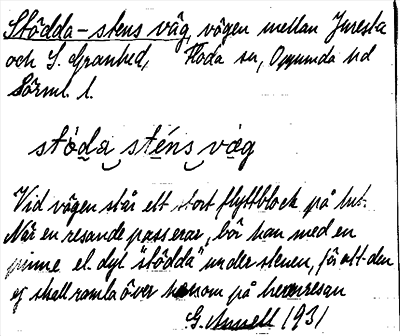 Stödda-stens väg, vägen mellan Juresta
och S. Granhed, Floda sn, Oppunda hd
Sörml. l.
stöda sténs väg
Vid vägen står ett stort flyttblock på lut.
När en resande passerar, bör han med en
pinne el. dyl. "stödda" under stenen, för att den
ej skall ramla över honom på hemresan
G. 1931